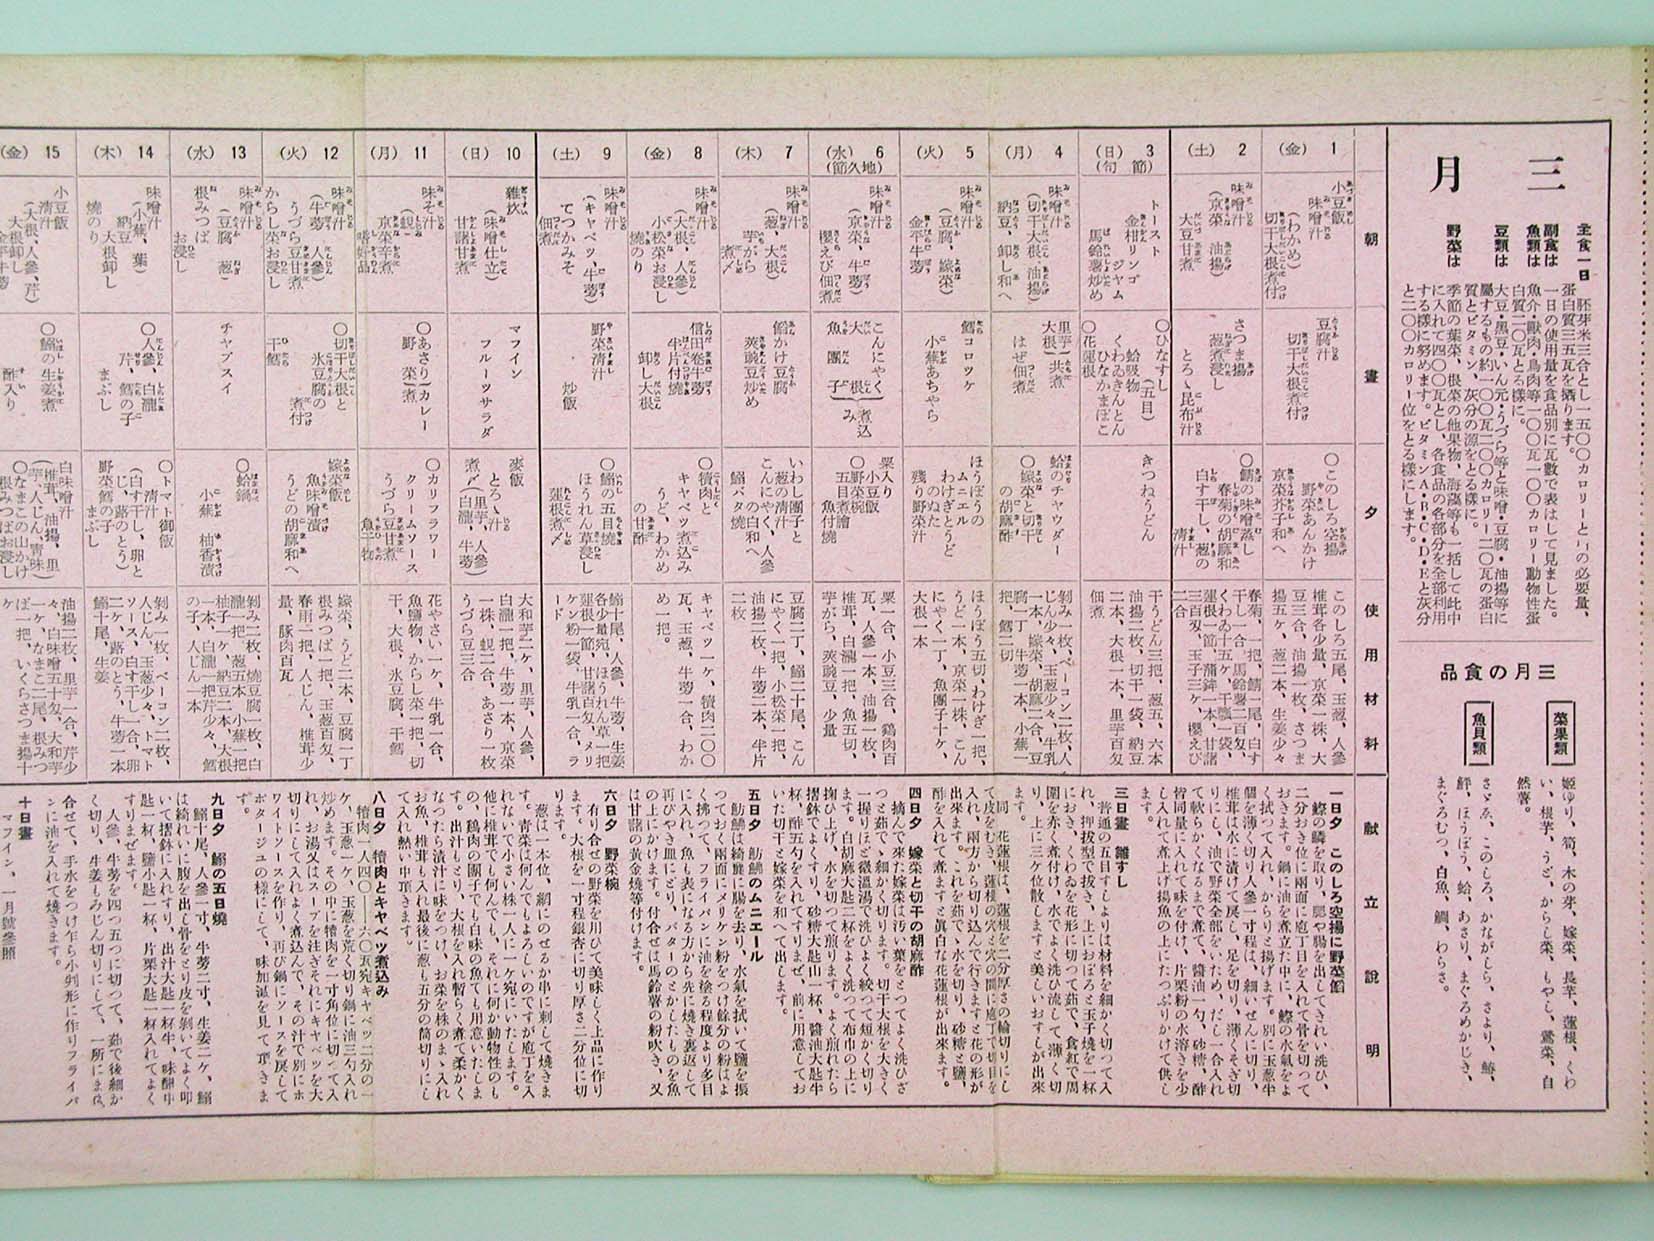 三月
主食一日
胚芽米三合とし一五〇〇カロリーと
蛋白質三五瓦を攝ります。
副食は
一日の使用量を食品別に瓦數で表はして見ました。
魚類は
魚介・獸肉・鳥肉等一〇〇瓦一〇〇カロリー動物性蛋
白質二〇瓦とる樣に。
豆類は
大豆・黑豆・いん元・うづら等と味噌・豆腐・油揚等に
屬するもの約一〇〇瓦二〇〇カロリー二〇瓦の蛋白
質とビタミン、灰分の源をとる樣に。
野菜は
季節の葉菜、根菜の他果物、海藻等も一括して此中
に入れて四〇〇瓦とし、各食品の各部分を全部利用
する樣に努めます。ビタミンA・B・C・D・Eと灰分
と二〇〇カロリー位をとる樣にします。
三月の食品
菜果類
姫ゆり、筍、木の芽、嫁菜、長芋、蓮根、くわ
い、根芋、うど、からし菜、もやし、鶯菜、自
然薯。
魚貝類
このしろ、かながしら、さより、鰆、
ほうぼう、蛤、あさり、まぐろめかじき、
まぐろむつ、白魚、鯛、わらさ。
朝
晝
夕
使用材料
献立説明
1(金)
小豆飯
味噌汁
(わかめ)
切干大根煮付
豆腐汁
切干大根煮付
〇このしろ空揚
野菜あんかけ
京菜芥子和へ
このしろ五尾、玉葱、人參
椎茸各少量、京菜一株、大
豆三合、油揚一枚、さつま
揚五ヶ、葱二本、生姜少々
2(土)
味噌汁
(京菜 油揚)
大豆甘煮
さつま揚
葱煮浸し
とろゝ昆布汁
〇鯖の味噌蒸し
春菊の胡麻和
白す干し、葱の
清汁
春菊一把、鯖一尾、白す
干し一合、馬鈴薯二百匁、
くわゐ十五ヶ、干瓢一袋、
蓮根一節、蒲鉾一本、甘諸
三百匁、玉子三ヶ、櫻えび
二合
3(日)(節句)
トースト
金柑リンゴ
ジヤム
馬鈴薯炒め
〇ひなすし
(五目)
蛤吸物
くわゐきんとん
ひなかまぼこ
〇花蓮根
きつねうどん
干うどん三把、葱五、六本
油揚二枚、切干一袋、納豆
二本、大根一本、里芋百匁
佃煮
4(月)
味噌汁
(切干大根、油揚)
納豆、卸し和へ
里芋
大根
共煮
はぜ佃煮
蛤のチヤウダー
〇嫁菜と切干
の胡麻酢
剝み一枚、ベーコン二枚、人
じん少々、玉葱少々、牛乳
一本、嫁菜、胡麻二合、豆
腐一丁、牛蒡一本、小蕪一
把、鱈二切
5(火)
味噌汁
(豆腐、嫁菜)
金平牛蒡
鱈コロツケ
小蕪あちやら
ほうぼうの
ムニエル
わけぎとうど
のぬた
殘り野菜汁
ほうぼう五切、わけぎ一把、
うど一本、京菜一株、こん
にやく一丁、魚團子十ヶ、
大根一本
6(水)(地久節)
味噌汁
(京菜、牛蒡)
櫻えび佃煮
こんにやく
大根
魚團子
煮込み
栗入り
小豆飯
〇野菜椀
五目煮膾
魚付燒
栗一合、小豆三合、鷄肉百
瓦、人參一本、油揚一枚、
椎茸、白瀧一把、魚五切、
芋がら、莢豌豆、少量
7(木)
味噌汁
(葱、大根)
芋がら
煮〆
鰯かけ豆腐
莢豌豆炒め
いわし團子と
葱の清汁
こんにやく、人參
の白和へ
鰯バタ燒
豆腐二丁、鰯二十尾、こん
にやく一把、小松菜一把、
油揚二枚、牛蒡二本、半片
二枚
8(金)
味噌汁
(大根、人參)
小松菜お浸し
燒のり
信田卷牛蒡
半片付燒
卸し大根
〇犢肉と
キャベツ煮込み
うど、わかめ
の甘酢
キャベツ一ヶ、犢肉二〇〇
瓦、玉葱、牛蒡一合、わか
め一把。
9(土)
味噌汁
(キャベツ、牛蒡)
てつかみそ
佃煮
野菜清汁
炒飯
〇鰯の五目燒
ほうれん草浸し
蓮根煮〆
鰯十尾、人參、牛蒡、生姜
各少量宛、ほうれん草一把
蓮根一節、甘諸百匁、メリ
ケン粉一袋、牛乳一合、ラ
ード
10(日)
雜炊
(味噌仕立)
甘諸甘煮
マフイン
フルーツサラダ
麥飯
とろゝ汁
煮〆(里芋、人參、
白瀧、牛蒡)
大和芋二ヶ、里芋、人參、
白瀧一把、牛蒡一本、京菜
一株、蜆二合、あさり一枚
うづら豆三合
11(月)
味そ汁
(蜆)
京菜辛煮
嗜好品
〇あさり
野菜
カレー
煮
〇カリフラワー
クリームソース
うづら豆甘煮
魚干物
花やさい一ヶ、牛乳一合、
魚鹽物、からし菜一把、切
干、大根、氷豆腐、干鱈
12(火)
味噌汁
(牛蒡 人參)
うづら豆甘煮
からし菜お浸し
〇切干大根と
氷豆腐の
煮付
干鱈
嫁菜飯
魚味噌漬
うどの胡麻和へ
嫁菜、うど二本、豆腐一丁
根みつば一把、玉葱百匁、
春雨一把、人じん、椎茸少
量、豚肉百瓦
13(水)
味噌汁
(豆腐 葱)
根みつば
お浸し
チヤプスイ
〇蛤鍋
小蕪 柚香漬
剝み二枚、燒豆腐一枚、白
瀧一把、葱五本、小蕪一把
柚子一ヶ、納豆二本、大根
一本、白瀧一把芹少々、鱈
の子、人じん一本
14(木)
味噌汁
(小蕪、葉)
納豆
大根卸し
燒のり
〇人參、白瀧
芹、鱈の子
まぶし
〇トマト御飯
清汁
(白す干し、卵と
じ、蕗のとう)
野菜鱈の子
まぶし
剝み一枚、ベーコン二枚、
人じん、玉葱少々、トマト
ソース、白す干し一合、卵
二ヶ、蕗のとう、牛蒡一本
鰯十尾、生姜
15(金)
小豆飯
清汁
(大根、人參、芹)
大根卸し
金平牛蒡
〇鰯の生姜煮
酢入り
白味噌汁
(椎茸、油揚、里
芋、人じん、靑味)
〇なまこの山かけ
根みつばお浸し
油揚二枚、里芋一合、芹少
々、白味噌五十匁、大和芋
一ヶ、なまこ二尾、根みつ
ば一把、いくらさつま揚十
ケ
一日夕 このしろ空揚に野菜餡
鰶の鱗を取り、腮や腸を出してきれい洗ひ、
二分おき位に兩面に庖丁目を入れて骨を切つて
おきます。鍋に油を煮立た中に、鰶の水氣をよ
く拭つて入れ、からりと揚げます。別に玉葱半
個を薄く切り人參一寸程は、細いせんに切り、
椎茸は水に漬けて戾し、足を切り、薄くそぎ切
りにし、油で野菜全部をいため、だし一合入れ
て軟らかくなるまで煮て、醬油一勺、砂糖、酢
皆同量に入れて味を付け、片栗粉の水溶きを少
し入れて煮上げ揚魚の上にたつぷりかけて供し
ます。
三日晝 雛すし
普通の五目すしよりは材料を細かく切つて入
れ、押拔型で拔き、上におぼろと玉子燒を一杯
におき、くわゐを花形に切つて茹で、食紅で周
圍を赤く煮付け、水でよく洗ひ流して、薄く切
り、上に三ヶ位散しますと美しいおすしが出來
ます。
同、花蓮根は、蓮根を二分厚さの輪切りにし
て皮をむき、蓮根の穴と穴の間に庖丁で切目を
入れ、兩方から切り込んで行きますと花の形が
出來ます。これを茹でゝ水を切り、砂糖と鹽、
酢を入れて煮ますと眞白な花蓮根が出來ます。
四日夕 嫁菜と切干の胡麻酢
摘んで來た嫁菜は汚い葉をとつてよく洗ひざ
つと茹でゝ細かく切ります。切干大根を大きく
一握りほど微溫湯で洗ひよく絞つて短かく切り
ます。白胡麻大匙二杯をよく洗つて布巾の上に
掬ひ上げ、水を切つて煎ります。よく煎れたら
摺鉢でよくすり、砂糖大匙山一杯、醬油大匙半
杯、酢五勺を入れてすりまぜ、前に用意してお
いた切干と嫁菜を和へて出します。
五日夕 魴鮄のムニエール
魴鮄は綺麗に腸を去り、水氣を拭いて鹽を振
つておく兩面にメリケン粉をつけ餘分の粉はよ
く拂つて、フライパンに油を塗る程度より多目
に入れ、魚も表になる方から先に燒き裏返して
再びやき皿にとり、バターのとかしたものを魚
の上にかけます。付合せは馬鈴薯の粉吹き、又
は甘諸の黃金燒等付けます。
六日夕 野菜椀
有り合せの野菜を用ひて美味しく上品に作り
ます。大根を一寸程銀杏に切り厚さ二分位に切
ります。
葱は一本位、網にのせるか串に刺して燒きま
す。靑菜は何んでもよろしいのですが庖丁を入
れないで小さい株一人に一ヶ宛にいたします。
他に椎茸でも何んでも、それに何か動物性のも
の、鷄肉の團子でも白味の魚でも用意いたしま
す。出汁もとり、大根を入れ暫らく煮て柔かく
なつたら漬汁に味をつけ、お菜の株のまゝ入れ
お魚、椎茸も入れ最後に葱も五分の筒切りにし
て入れ熱い中頂きます。
八日夕 犢肉とキャベツ煮込み
犢肉一人四〇——六〇瓦宛キャベツ二分の一
ケ、玉葱一ケ、玉葱を荒く切り鍋に油三勺入れ
炒めます。その中に犢肉を一寸角位に切つて入
れ、お湯又はスープを注ぎそれにキャベツを大
切りにして入れよく煮込んで、その汁で別にホ
ワイトソースを作り、再び鍋にソースを戾して
ポタージユの樣にして、味加減を見て頂きま
す。
九日夕 鰯の五目燒
鰯十尾、人參一寸、牛蒡二寸、生姜二ケ、鰯
は綺れいに腹を出し骨をとり皮を剝いてよく叩
いて摺鉢に入れすり、出汁大匙一杯半、味醂中
匙一杯、鹽小匙一杯、片栗大匙一杯入れてよく
すりまぜます。
人參、牛蒡を四つ五つに切つて、茹で後細か
く切り、生姜もみじん切りにして、一所にまぜ
合せて、手水をつけ乍ら小判形に作りフライパ
ンに油を入れて燒きます。
十日晝
マフイン、一月號參照